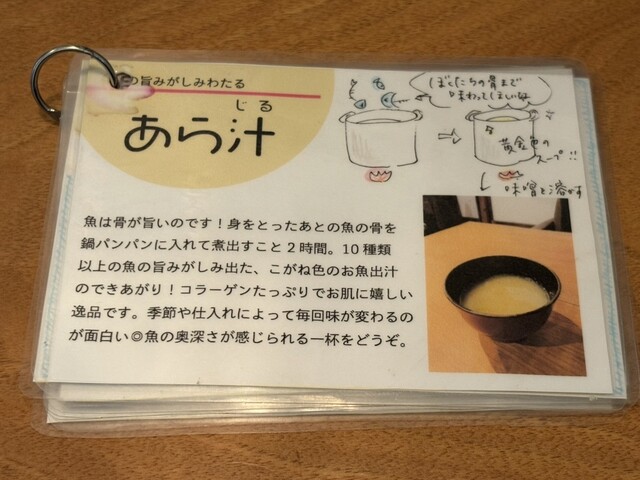 の旨みがしみわたる
じる
あら汁
ぼくたちの骨まで
味わってほしいな
黄金色の
スープ!!
味噌を溶かす
魚は骨が旨いのです！身をとったあとの魚の骨を
鍋パンパンに入れて煮出すこと２時間。10 種類
以上の魚の旨みがしみ出た、こがね色のお魚出汁
のできあがり！コラーゲンたっぷりでお肌に嬉しい
逸品です。季節や仕入れによって毎回味が変わるの
が面白い◎魚の奥深さが感じられる一杯をどうぞ。